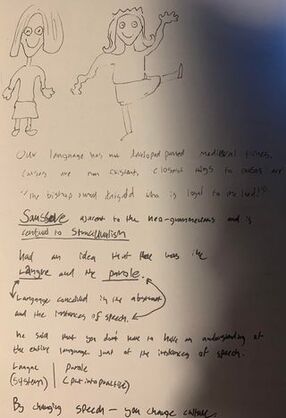 Our language has not developed passed medieval times.
are non existent, closest
"The bishop knight who is loyal to the
adjacent to the neo-grammarians and is
to Structuralism
Had an idea that there was the
Langue and the parole.
Language conceived in the abstract
and the instances of speech.
He said that you don't have to have an understanding of
the entire language just of the instances of speech.
Langue | Parole
(system) | (put into practice)
By changing speech – you change culture.